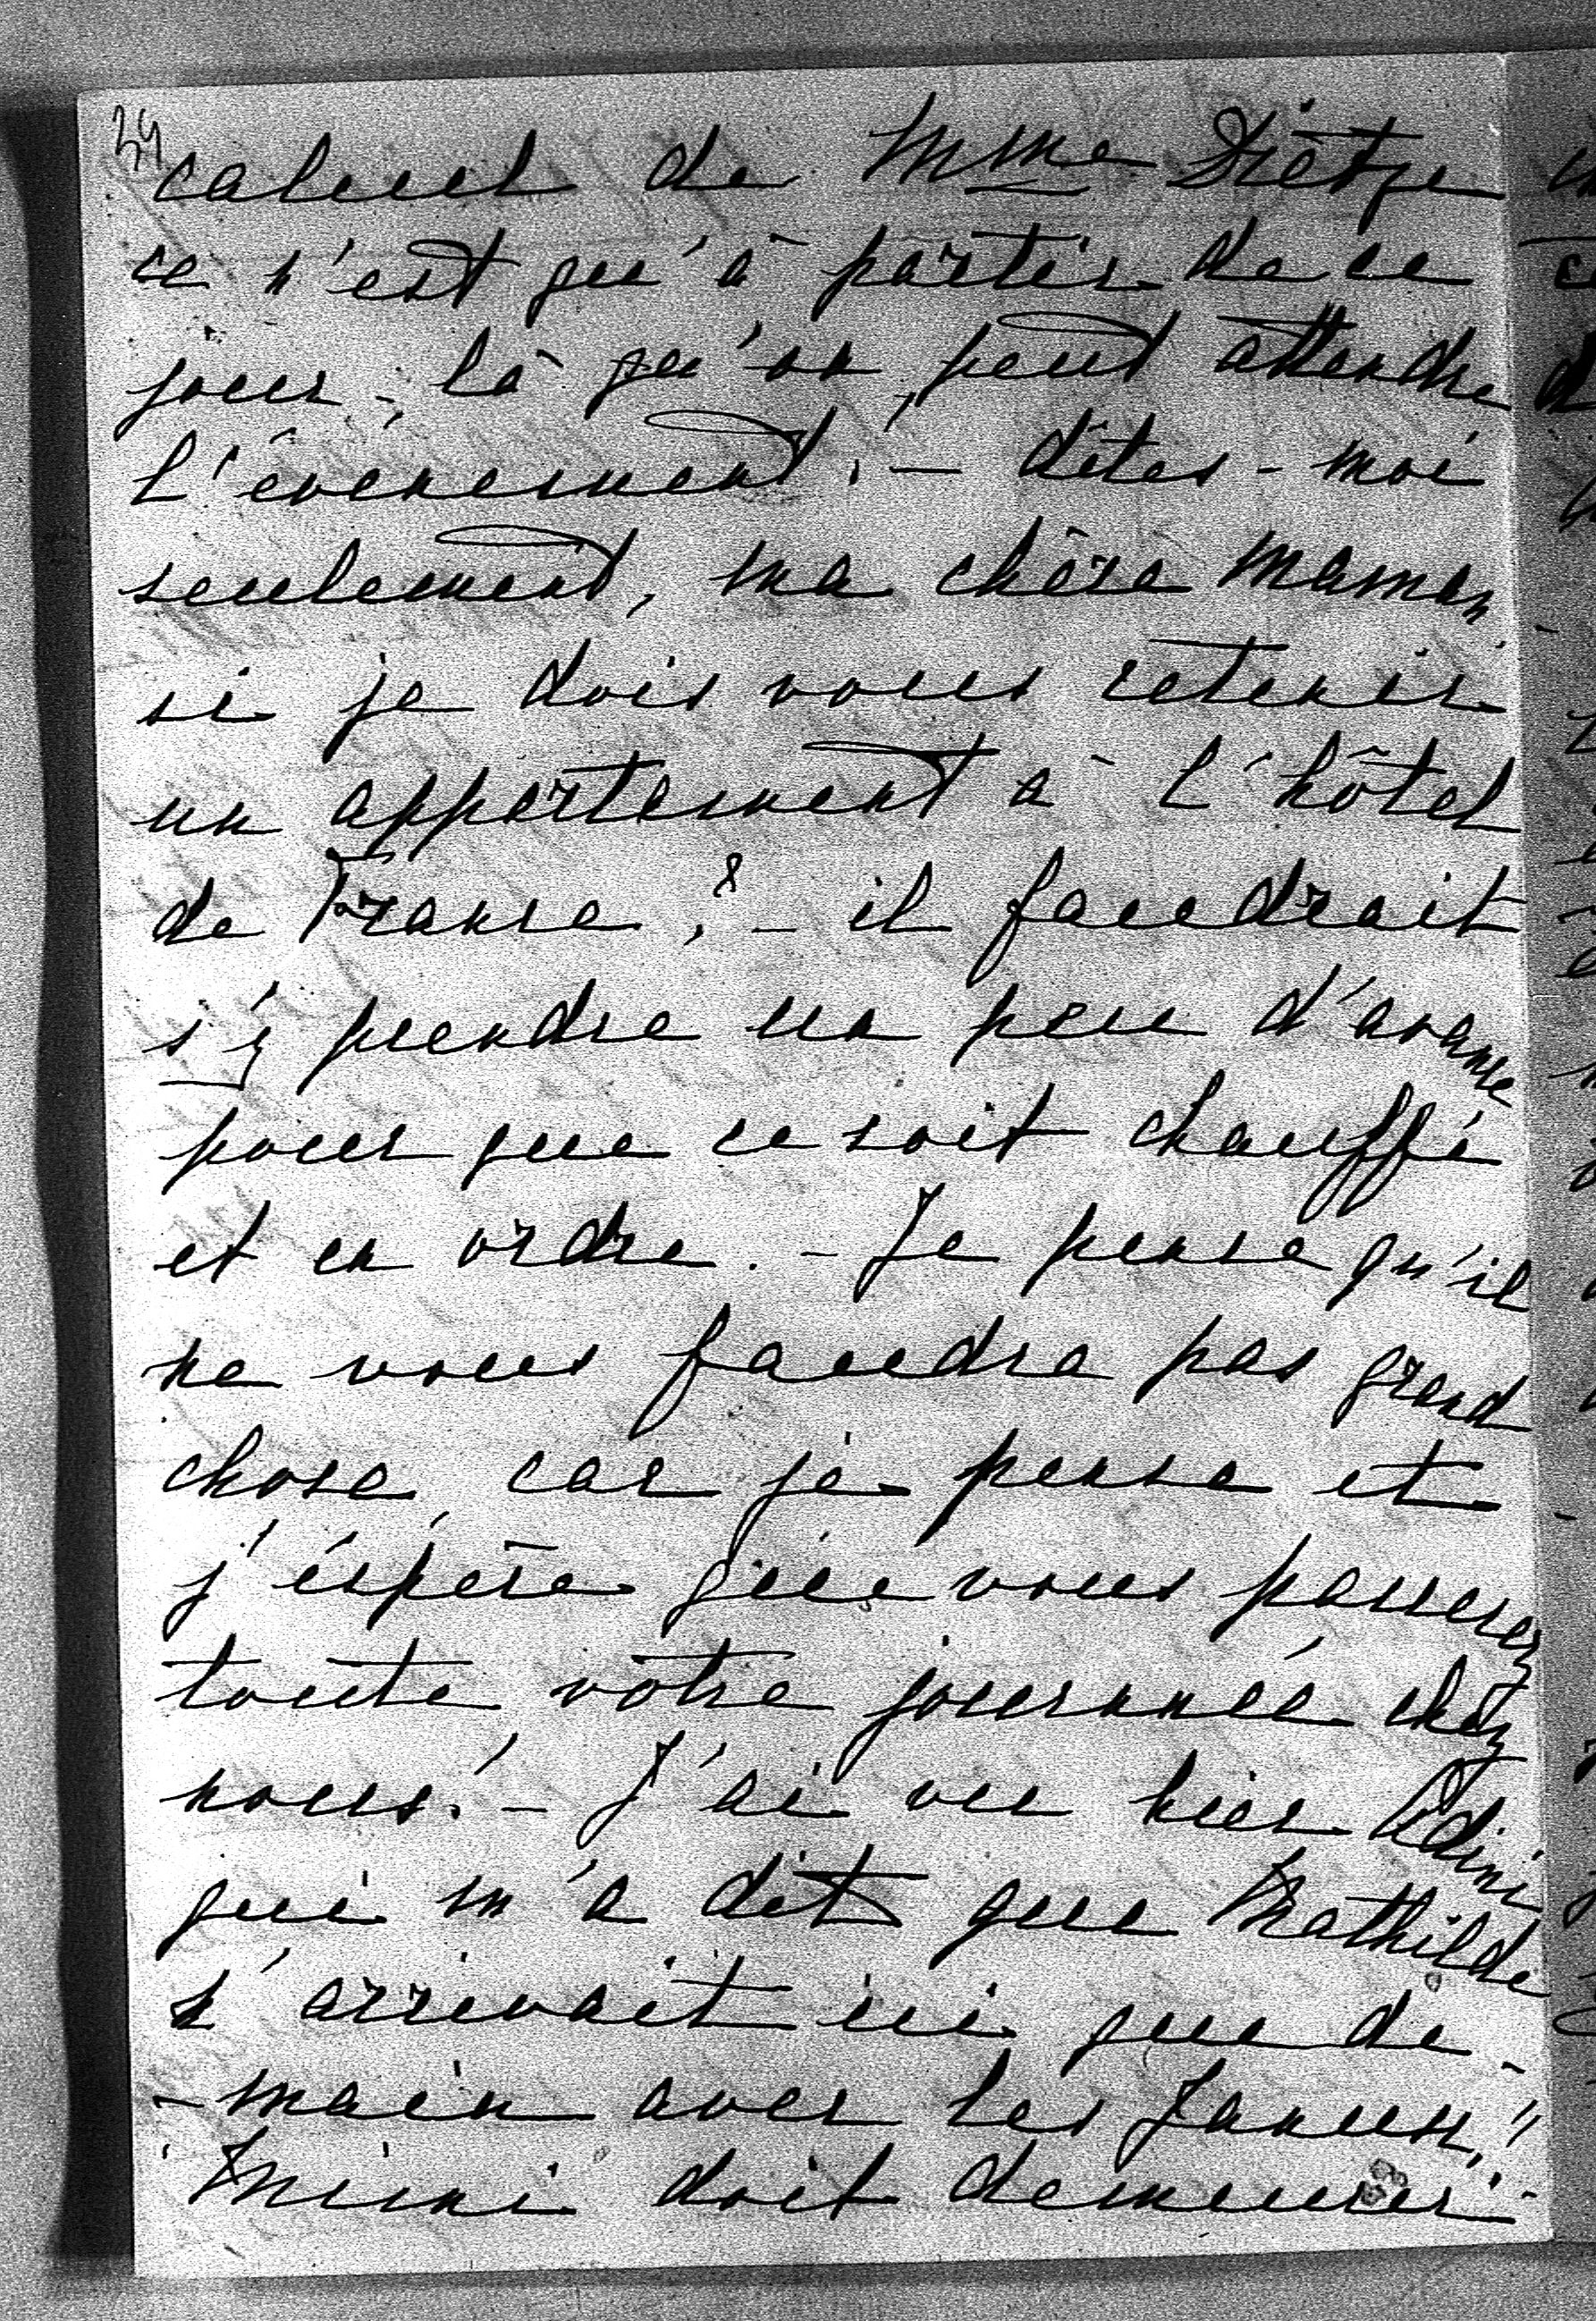 calcul de Mme Dietze
ce n'est qu'à partir de ce
jour-là qu'on peut attendre
l'évenement; — dites-moi
seulement, ma chère Maman,
si je dois vous retenir
un appartement à l'hôtel
de France? - il faudrait
s'y prendre un peu d'avance
pour que ce soit chauffé
et en ordre. - Je pense qu'il
ne vous faudra pas grand
chose, car je pense et
j'éspère que vous passerez
toute votre journée chez
nous. - J'ai vu hier Adini
qui m'a dit que Mathilde
n'arrivait ici que de-
-main avec les
Mimi doit demeurer